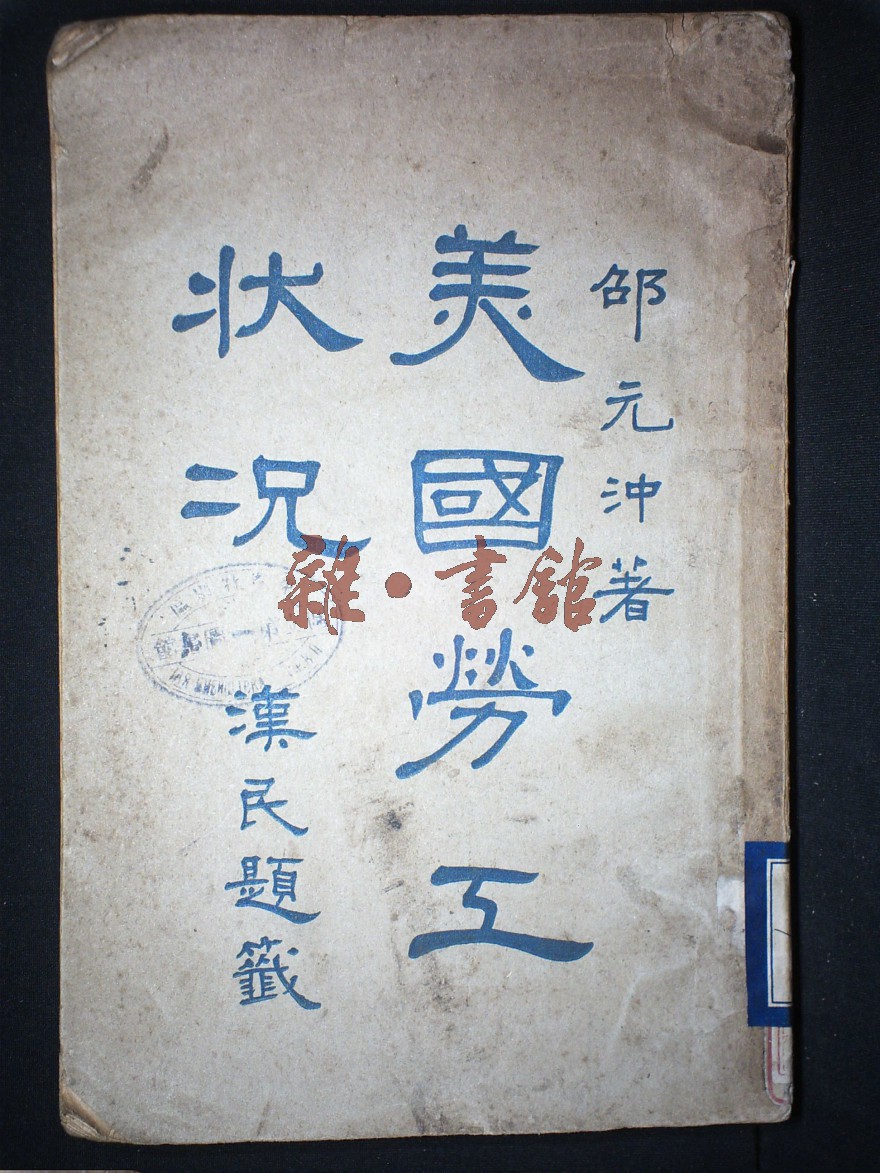 邵元沖著
美國勞工
狀況
漢民題籤
雜·書館